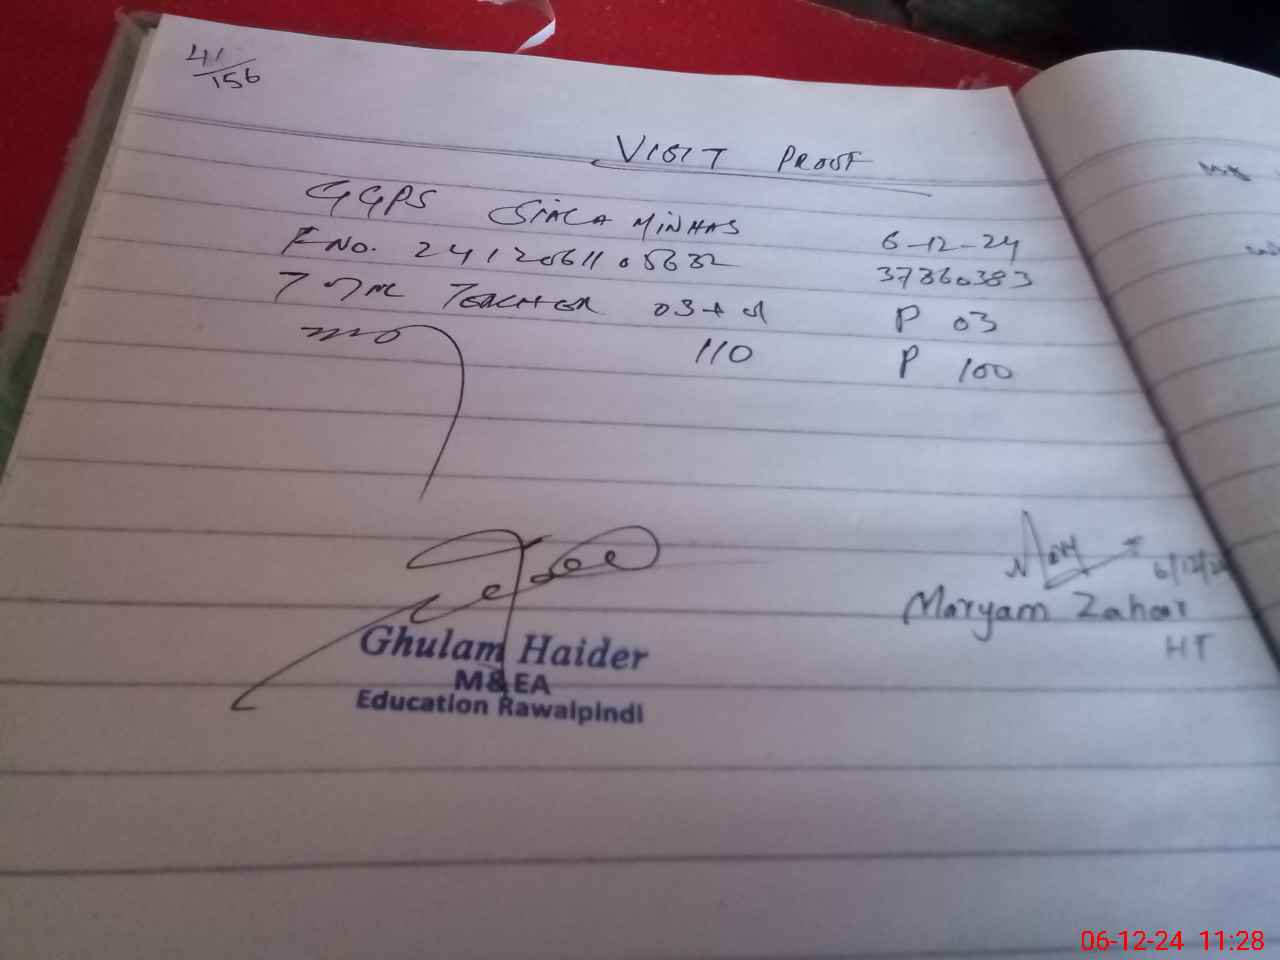 41/156
VISIT PROOF
GGPS MINHAS 6-12-24
F NO. 2412061105632 37360383
TEACHER 03+01 P 03
110 P 100
6/12/24
Maryam Zahoor
HT
Ghulam Haider
M&EA
Education Rawalpindi
06-12-24 11:28